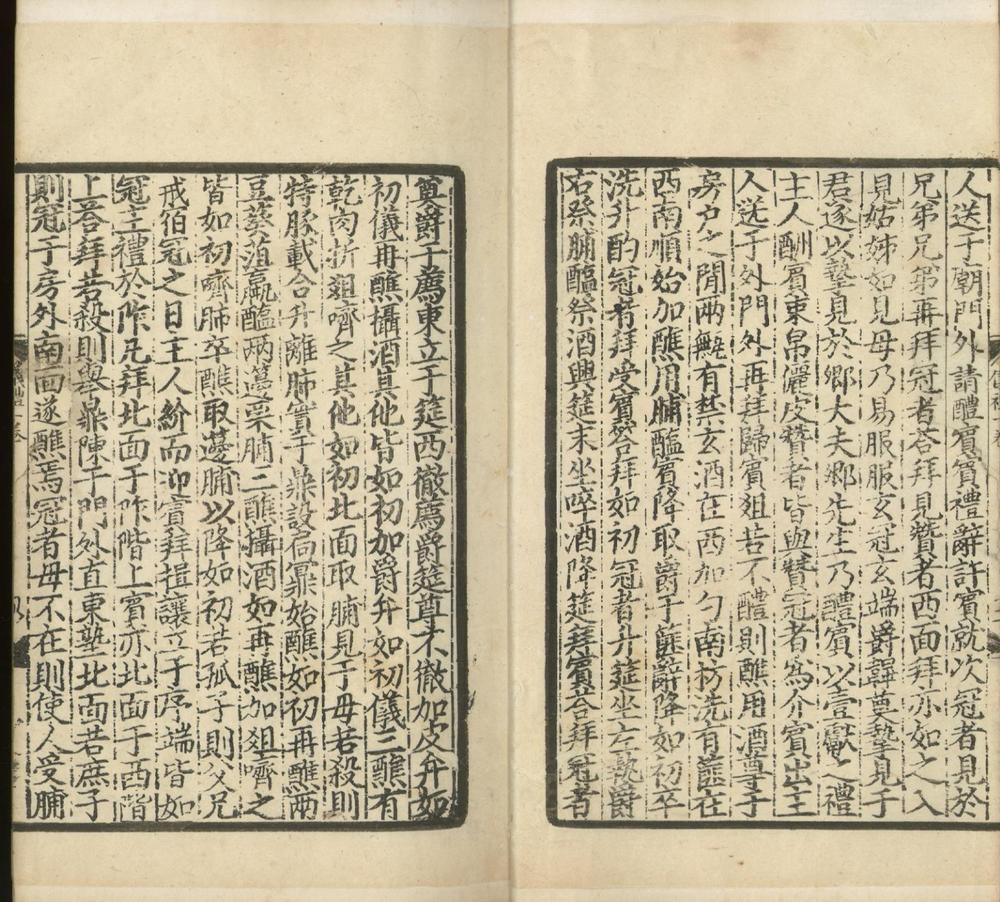 人送于廟門外請醴賓賓禮辭許賓就次冠者見於
兄弟兄弟再拜冠者荅拜見贊者西面拜亦如之入
見姑姊如見母乃易服服玄冠玄端爵韠奠摯見于
君遂以摯見於鄉大夫鄉先生乃醴賓以壹獻之禮
主人酬賓束帛儷皮贊者皆與贊冠者為介賓出主
人送于外門外再拜歸賓俎若不醴則醮用酒尊于
房户之間兩甒有禁玄酒在西加勺南枋洗有篚在
西南順始加醮用脯醢賓降取爵于篚辭降如初卒
洗升酌冠者拜受賓荅拜如初冠者升筵坐左執爵
右祭脯醢祭酒興筵末坐啐酒降筵拜賓荅拜冠者
奠爵于薦東立于筵西徹薦爵筵尊不徹加皮弁如
初儀再醮攝酒其他皆如初加爵弁如初儀三醮有
乾肉折俎嚌之其他如初北面取脯見于母若殺則
特豚載合升離肺實于鼎設扃鼏始醮如初再醮兩
豆葵菹蠃醢兩籩栗脯三醮攝酒如再醮加俎嚌之
皆如初嚌肺卒醮取籩脯以降如初若孤子則父兄
戒伯冠之日主人紒而迎賓拜揖讓立于序端皆如
冠主禮於阼凡拜北面于阼階上賓亦北面于西階
上荅拜若殺則舉鼎陳于門外直東塾北面若庶子
則冠于房外南面遂醮焉冠者母不在則使人受脯